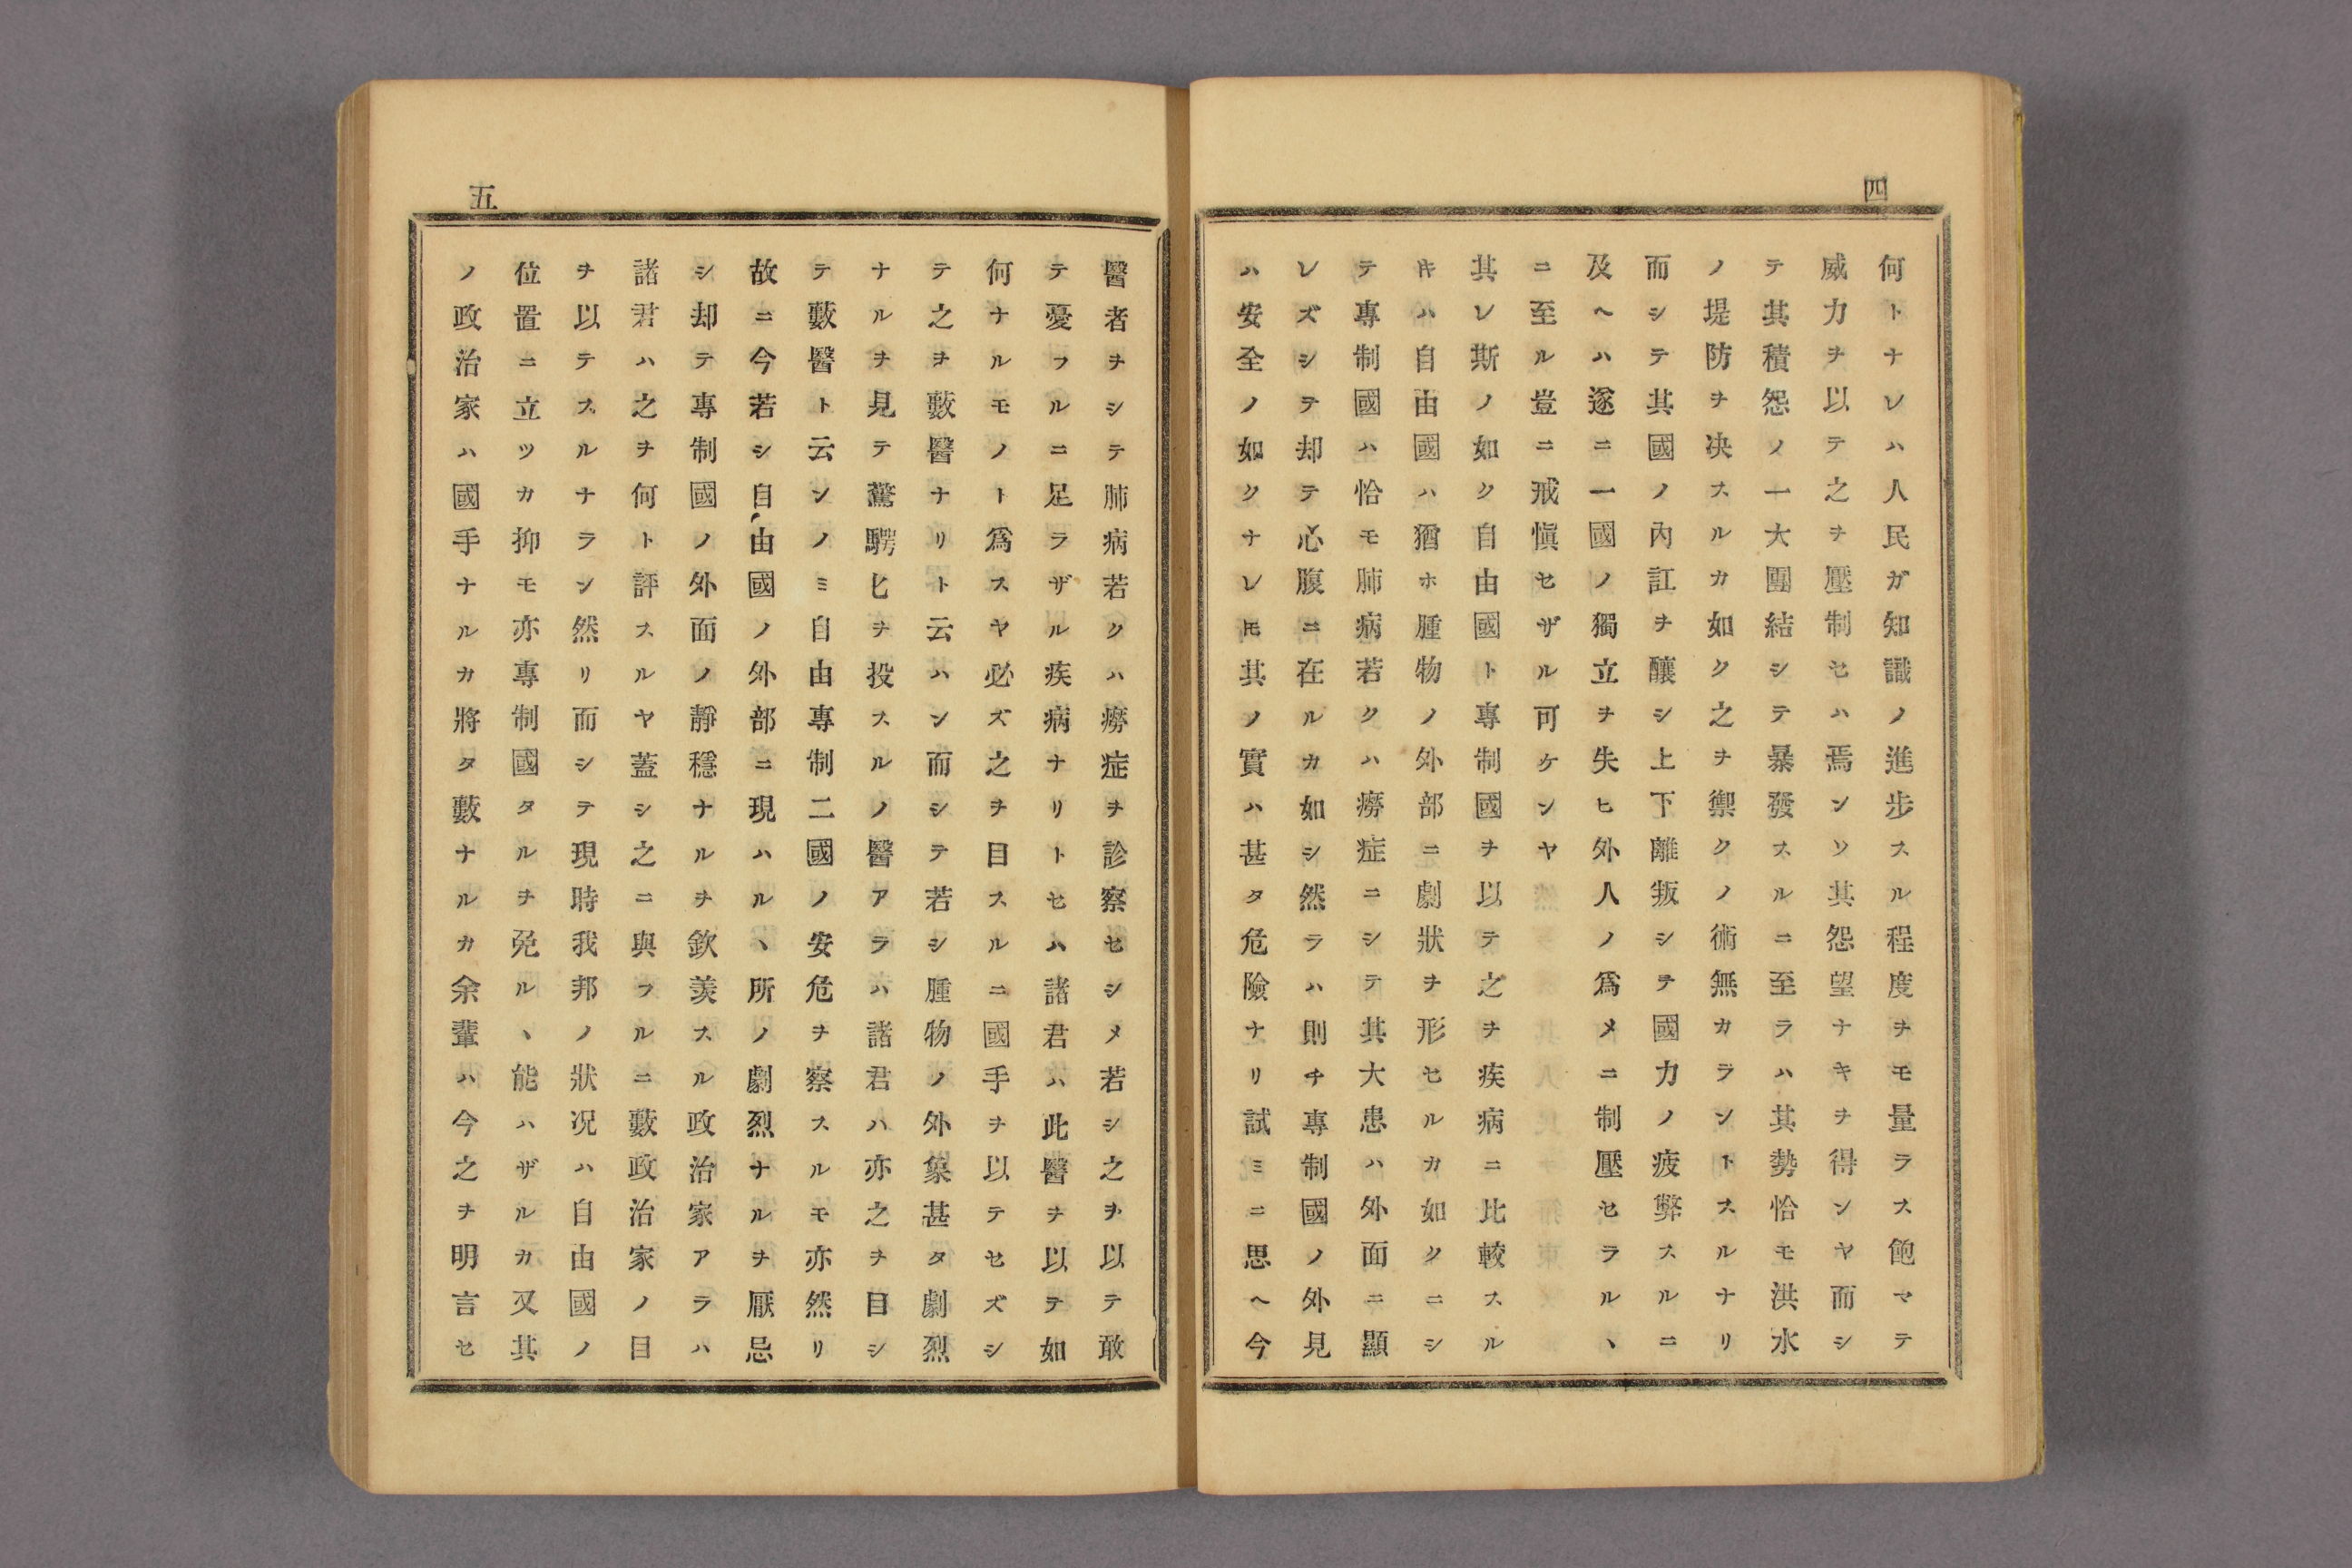 四
何トナレハ人民ガ知識ノ進步スル程度ヲモ量ラス飽マテ
威力ヲ以テ之ヲ壓制セハ焉ンソ其怨望ナキヲ得ンヤ而シ
テ其積怨ノ一大團結シテ暴發スルニ至ラハ其勢恰モ洪水
ノ堤防ヲ决スルカ如ク之ヲ禦クノ術無カラントスルナリ
而シテ其國ノ內訌ヲ釀シ上下離叛シテ國力ノ疲弊スルニ
及ヘハ遂ニ一國ノ獨立ヲ失ヒ外人ノ爲メニ制壓セラルヽ
ニ至ル豈ニ戒愼セザル可ケンヤ
其レ斯ノ如ク自由國ト專制國ヲ以テ之ヲ疾病ニ比較スル
キハ自由國ハ猶ホ腫物ノ外部ニ劇狀ヲ形セルカ如クニシ
テ專制國ハ恰モ肺病若クハ癆症ニシテ其大患ハ外面ニ顯
レズシテ却テ心腹ニ在ルカ如シ然ラハ則チ專制國ノ外見
ハ安全ノ如クナレ𪜈其ノ實ハ甚タ危險ナリ試ミニ思ヘ今
五
醫者ヲシテ肺病若クハ癆症ヲ診察セシメ若シ之ヲ以テ敢
テ憂フルニ足ラザル疾病ナリトセハ諸君ハ此醫ヲ以テ如
何ナルモノト爲スヤ必ズ之ヲ目スルニ國手ヲ以テセズシ
テ之ヲ藪醫ナリト云ハン而シテ若シ腫物ノ外象甚タ劇烈
ナルヲ見テ驚騁匕ヲ投スルノ醫アラハ諸君ハ亦之ヲ目シ
テ藪醫ト云ンノミ自由專制二國ノ安危ヲ察スルモ亦然リ
故ニ今若シ自由國ノ外部ニ現ハルヽ所ノ劇烈ナルヲ厭忌
シ却テ專制國ノ外面ノ靜穩ナルヲ欽羨スル政治家アラハ
諸君ハ之ヲ何ト評スルヤ蓋シ之ニ與フルニ藪政治家ノ目
ヲ以テスルナラン然リ而シテ現時我邦ノ狀况ハ自由國ノ
位置ニ立ツカ抑モ亦專制國タルヲ免ルヽ能ハザルカ又其
ノ政治家ハ國手ナルカ將タ藪ナルカ余輩ハ今之ヲ明言セ